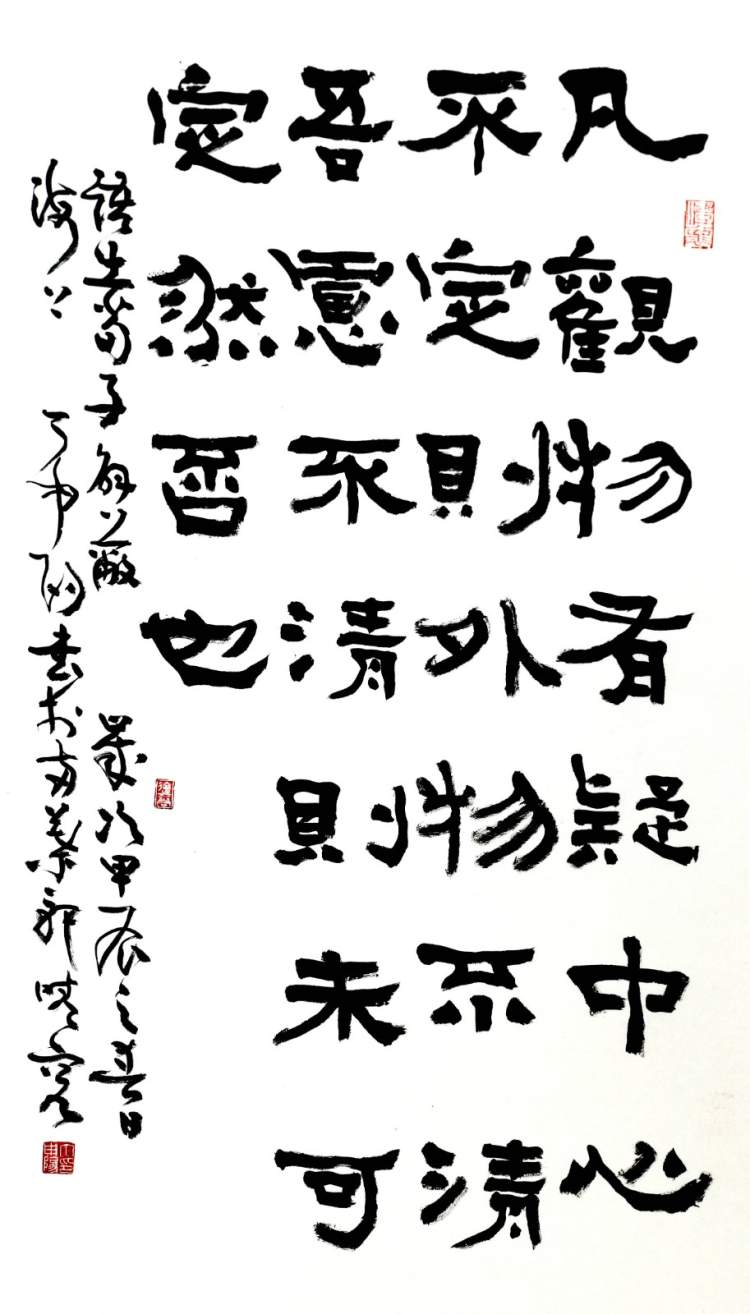 凡觀物有疑中心
不定則外物不清
吾慮不清則未可
定然否也
語出荀子解蔽 歲次甲辰之春日
海上 丁申陽書於